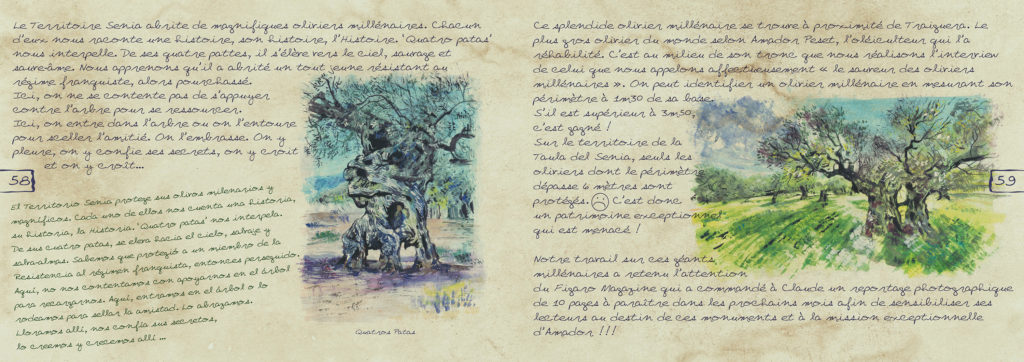 Le Territoire Senia abrite de magnifiques oliviers millénaires. Chacun
d'eux nous raconte une histoire, son histoire, l'Histoire. 'Quatro patas'
nous interpelle. De ses quatre pattes, il s'élève vers le ciel, sauvage et
sauve-âme. Nous apprenons qu'il a abrité un tout jeune résistant au
régime franquiste, alors pourchassé.
Ici, on ne se contente pas de s'appuyer
contre l'arbre pour se ressourcer.
Ici, on entre dans l'arbre ou on l'entoure
pour sceller l'amitié. On l'embrasse. On y
pleure, on y confie ses secrets, on y croit
et on y croît...
58
El Territorio Senia protege sus olivos milenarios y
magníficos. Cada uno de ellos nos cuenta una historia,
su historia, la Historia. 'Quatro patas' nos interpela.
De sus cuatro patas, se eleva hacia el cielo, salvaje y
salva-almas. Sabemos que protegió a un miembro de la
Resistencia al régimen franquista, entonces perseguido.
Aquí, no nos contentamos con apoyarnos en el árbol
para recargarnos. Aquí, entramos en el árbol o lo
rodeamos para sellar la amistad. Lo abrazamos.
Lloramos allí, nos confía sus secretos,
lo creemos y crecemos allí ...
Quatros Patas
Ce splendide olivier millénaire se trouve à proximité de Traiguera. Le
plus gros olivier du monde selon Amador Peset, l'oléiculteur qui l'a
réhabilité. C'est au milieu de son tronc que nous réalisons l'interview
de celui que nous appelons affectueusement « le sauveur des oliviers
millénaires ». On peut identifier un olivier millénaire en mesurant son
périmètre à 1m30 de sa base.
S'il est supérieur à 3m50,
c'est gagné !
Sur le territoire de la
Taula del Senia, seuls les
oliviers dont le périmètre
dépasse 6 mètres sont
protégés. C'est donc
un patrimoine exceptionnel
qui est menacé !
59
Notre travail sur ces géants
millénaires a retenu l'attention
du Figaro Magazine qui a commandé à Claude un reportage photographique
de 10 pages à paraître dans les prochains mois afin de sensibiliser ses
lecteurs au destin de ces monuments et à la mission exceptionnelle
d'Amador !!!